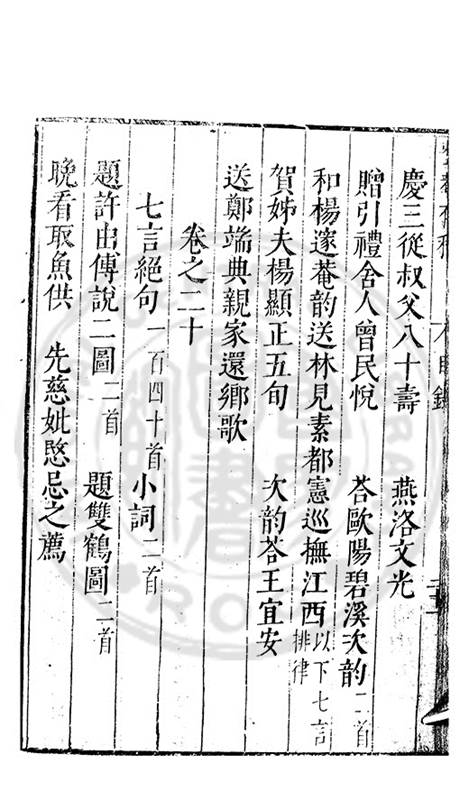 慶三從叔父八十壽　燕洛文光
贈引禮舍人曾民悅　荅歐陽碧溪次韵二首
和楊邃菴韵送林見素都憲巡撫江西以下七言排律
賀姊夫楊顯正五旬　次韵荅王宜安
送鄭端典親家還鄉歌
卷之二十
七言絕句一百四十首小詞二首
題許由傅說二圖二首　題雙鶴圖二首
晚看取魚供　先慈妣愍忌之薦